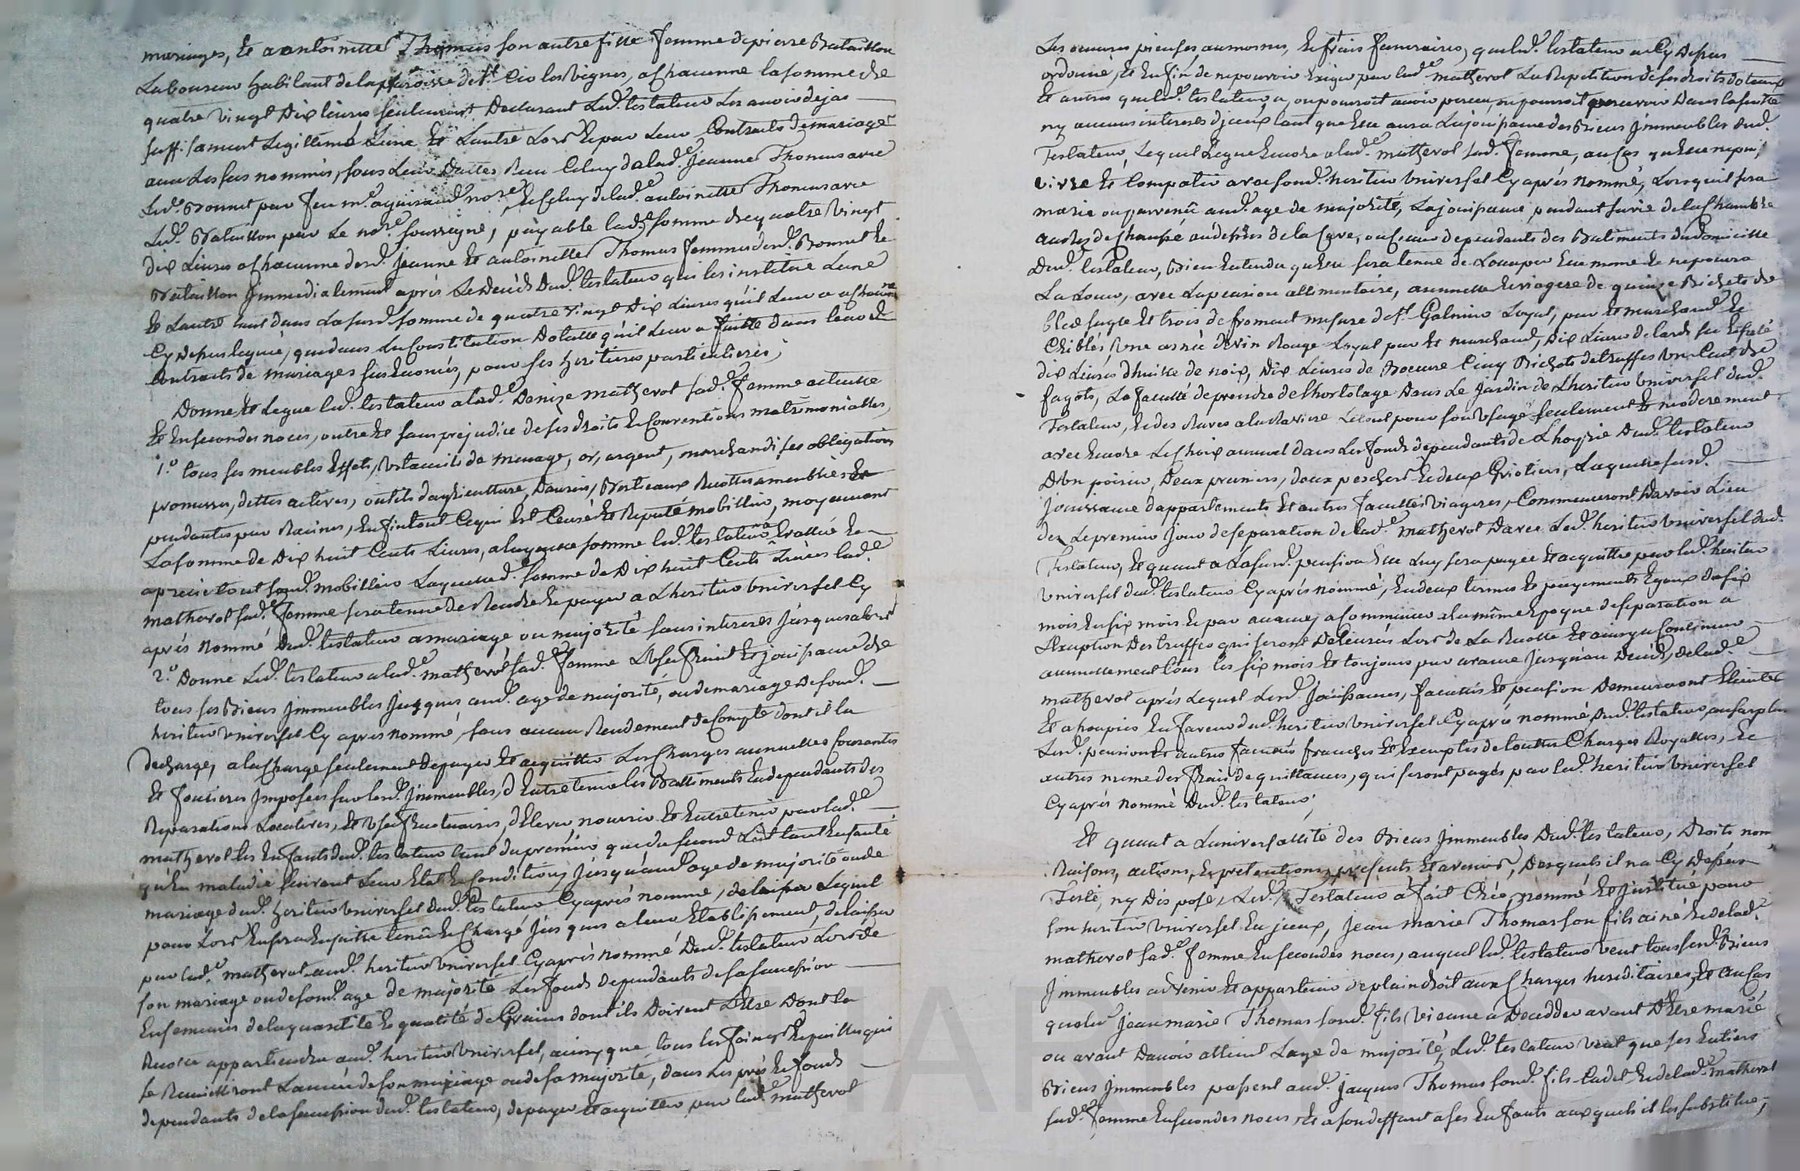 mariages, et a antoinette Thomas son autre fille femme de pierre Bataillon
Laboureur habitant de la paroisse de St. les Vignes, a chacunne la somme de
quatre vingt Dix livres seulement, Declarant Led. testateur Les avoir deja
suffisament Legittimé Lune et Lautre Lors et par Leur Contracts de mariage
avec Les sus nommés, sous Leurs Dattes Reçu Celuy de lad.e Jeanne Thomas avec
Led. Bonnet par feu me. no.re et celuy de lad.e antoinette Thomas avec
Led. Bataillon par Le no.re soussigné, payable lad.e somme de quatre vingt
dix Livres a chacunne desd. Jeanne et antoinette Thomas femmes desd. Bonnet et
Bataillon Immediatement après Le Decés dud. testateur qui les institue Lune
et Lautre tant dans La susd. somme de quatre vingt Dix Livres qu'il Leur a a chacunne
Cy Depus leguée, que dans La Constitution Dotalle qu'il Leur a faitte dans leurs d.
Contracts de mariages susenoncés, pour ses heritieres particulieres;
Donne et Legue led. testateur a lad.e Denize matherot sad.e femme actuelle
et en secondes noces, outre et sans prejudice de ses droits et Conventions matrimonialles,
1.o tous ses meubles Effets, Ustancils de menage, or, argent, marchandises obligations
promesses, dettes actives, outils d'agriculture, Danrées, Bestiaux Recottes ameublies et
pendantes par Racines, Enfin tout Ce qui Est Censé et Reputé mobillier, moyennant
La somme de Dix huit Cents Livres, a laquelle somme led. testateur a Evallué et
aprecié tout sond. mobillier Laquelle d. somme de Dix huit Cents Livres lad.e
matherot sad.e femme sera tenue de Rendre et payer a Lheritier Universel Cy
après nommé Dud. testateur a mariage ou majorité sans interest Jusques alors
2.o Donne Led. testateur a lad.e matherot sad.e femme Lusufruit et jouissance de
tous ses Biens Immeubles Jusques aud. age de majorité, ou de mariage de sond.
heritier Universel Cy après nommé, sans aucun Rendement de Compte dont il la
decharge, a la Charge seulement de payer et acquitter Les Charges annuelles Courantes
et foncieres Imposées sur lesd. Immeubles, d'Entretenir les Battiments en dependants des
Reparations Locatives, et Usufructuaires, d'Elever nourrir et Entretenir par lad.e
matherot les Enfants dud. testateur tant du premier que du second Lit tant En santé
qu'En maladie suivant Leur Etat et Condition, Jusqu'aud. age de majorité ou de
mariage dud. heritier Universel dud. testateur Cy après nommé, de laisser Lequel
pour Lors En sera Ensuitte tenu et Chargé Jusques a leur Etablissement, delaisser
par lad.e matherot aud. heritier Universel Cy après nommé Dud. testateur Lors de
son mariage ou de sond. age de majorité Les fonds dependants de sa succession
Ensemencés de la quantité et qualité de Grains dont ils Doivent L'etre Dont la
Recolte appartiendra aud. heritier Universel, ainsy que tous les foins et pailles qui
se Recuilliront Lannée de son mariage ou de sa majorité, dans Les prés et fonds
dependants de la succession dud. testateur, de payer et acquitter par lad.e matherot
Les oeuvres pieuses aumosnes, et frais funeraires, que led. testateur a Cy Depus
ordonné, Et Enfin de ne pouvoir Exiger par lad.e matherot La Repetition de ses droits dotaux
Et autres que led. testateur a, ou pourroit avoir perçu, ne pourroit percevoir Dans la suitte
ny aucuns interests d'iceux tant que Elle aura La jouissance des Biens Immeubles dud.
Testateur, Lequel Legue Encore a lad.e matherot sad.e femme, au Cas qu'Elle ne puisse
vivre et Compatir avec sond. heritier Universel Cy après nommé, Lorsqu'il sera
marié ou parvenu aud. age de majorité, La jouissance pendant sa vie de la Chambre
au dessus de la Cave, dependants des Batiments du domicille
Dud. testateur, Bien Entendu qu'Elle sera tenue de Loccuper Elle meme et ne pourra
La Louer, avec La pension allimentaire, annuelle et viagere de quinze Bichets de
bled seigle et trois de froment mesure de St. Galmier Loyal, pur et marchand et
Criblés Une asnée de vin Rouge Loyal pur et marchand, Dix Livres de lard
dix Livres d'huille de noix, Dix Livres de Beurre Cinq Bichets de truffes Un Cent de
fagots, La faculté de prendre de Lhortolage Dans Le Jardin de Lheritier Universel dud.
Testateur, et des Raves a la Raviere Le tout pour son Usage seulement et moderement
avec Encore Le Choix annuel dans Les fonds dependants de Lhoyrie Dud. testateur
D'Un poirier, Deux pruniers, deux peschers et deux Griotiers, Laquelle susd.
Jouissance d'appartements et autres facultés viageres, Commenceront D'avoir Lieu
dez Le premier Jour de separation de lad.e matherot D'avec Led. heritier Universel dud.
Testateur, Et quant a La susd. pension Elle Luy sera payée et acquittée par led. heritier
Universel dud. testateur Cy après nommé, en deux termes et payements Egaux de six
mois En six mois et par avance, a Commencer a la même Epoque de separation a
L'Exception Des truffes qui seront Delivrées Lors de La Recolte et ainsy a Continuer
annuellement tous les six mois et toujours par avance Jusqu'au Decés de lad.e
matherot après Lequel Lesd. Jouissances, facultés et pension Demeureront Eteintes
Et assoupies En faveur dud. heritier Universel Cy après nommé dud. testateur, au surplus
Lesd. pension et autres facultés franches et Exemptes de touttes Charges Royalles, et
autres meme des frais de quittances, qui seront payés par led. heritier Universel
Cy après nommé Dud. testateur;
Et quant a Luniversallité des Biens Immeubles Dud. testateur, Droits noms
Raisons, actions, Et pretentions presents Et avenir, Desquels il na Cy Dessus
Testé, ny Disposé, Led. Testateur a fait Créé, nommé Et Institué pour
son heritier Universel En iceux, Jean marie Thomas son fils ainé Et de lad.e
matherot sad.e femme En secondes noces, auquel led. testateur veut tous sesd. Biens
Immeubles advenir Et appartenir de plain droit aux Charges hereditaires, Et au Cas
que led. Jean marie Thomas sond. fils Vienne a Decedder avant D'Etre marié
ou avant D'avoir atteint Lage de majorité, Led. testateur veut que ses Entiers
Biens Immeubles passent aud. Jacques Thomas sond. fils Cadet Et de lad.e matherot
sad.e femme En secondes noces, Et a son deffaut a ses Enfants auxquels il les substitue;